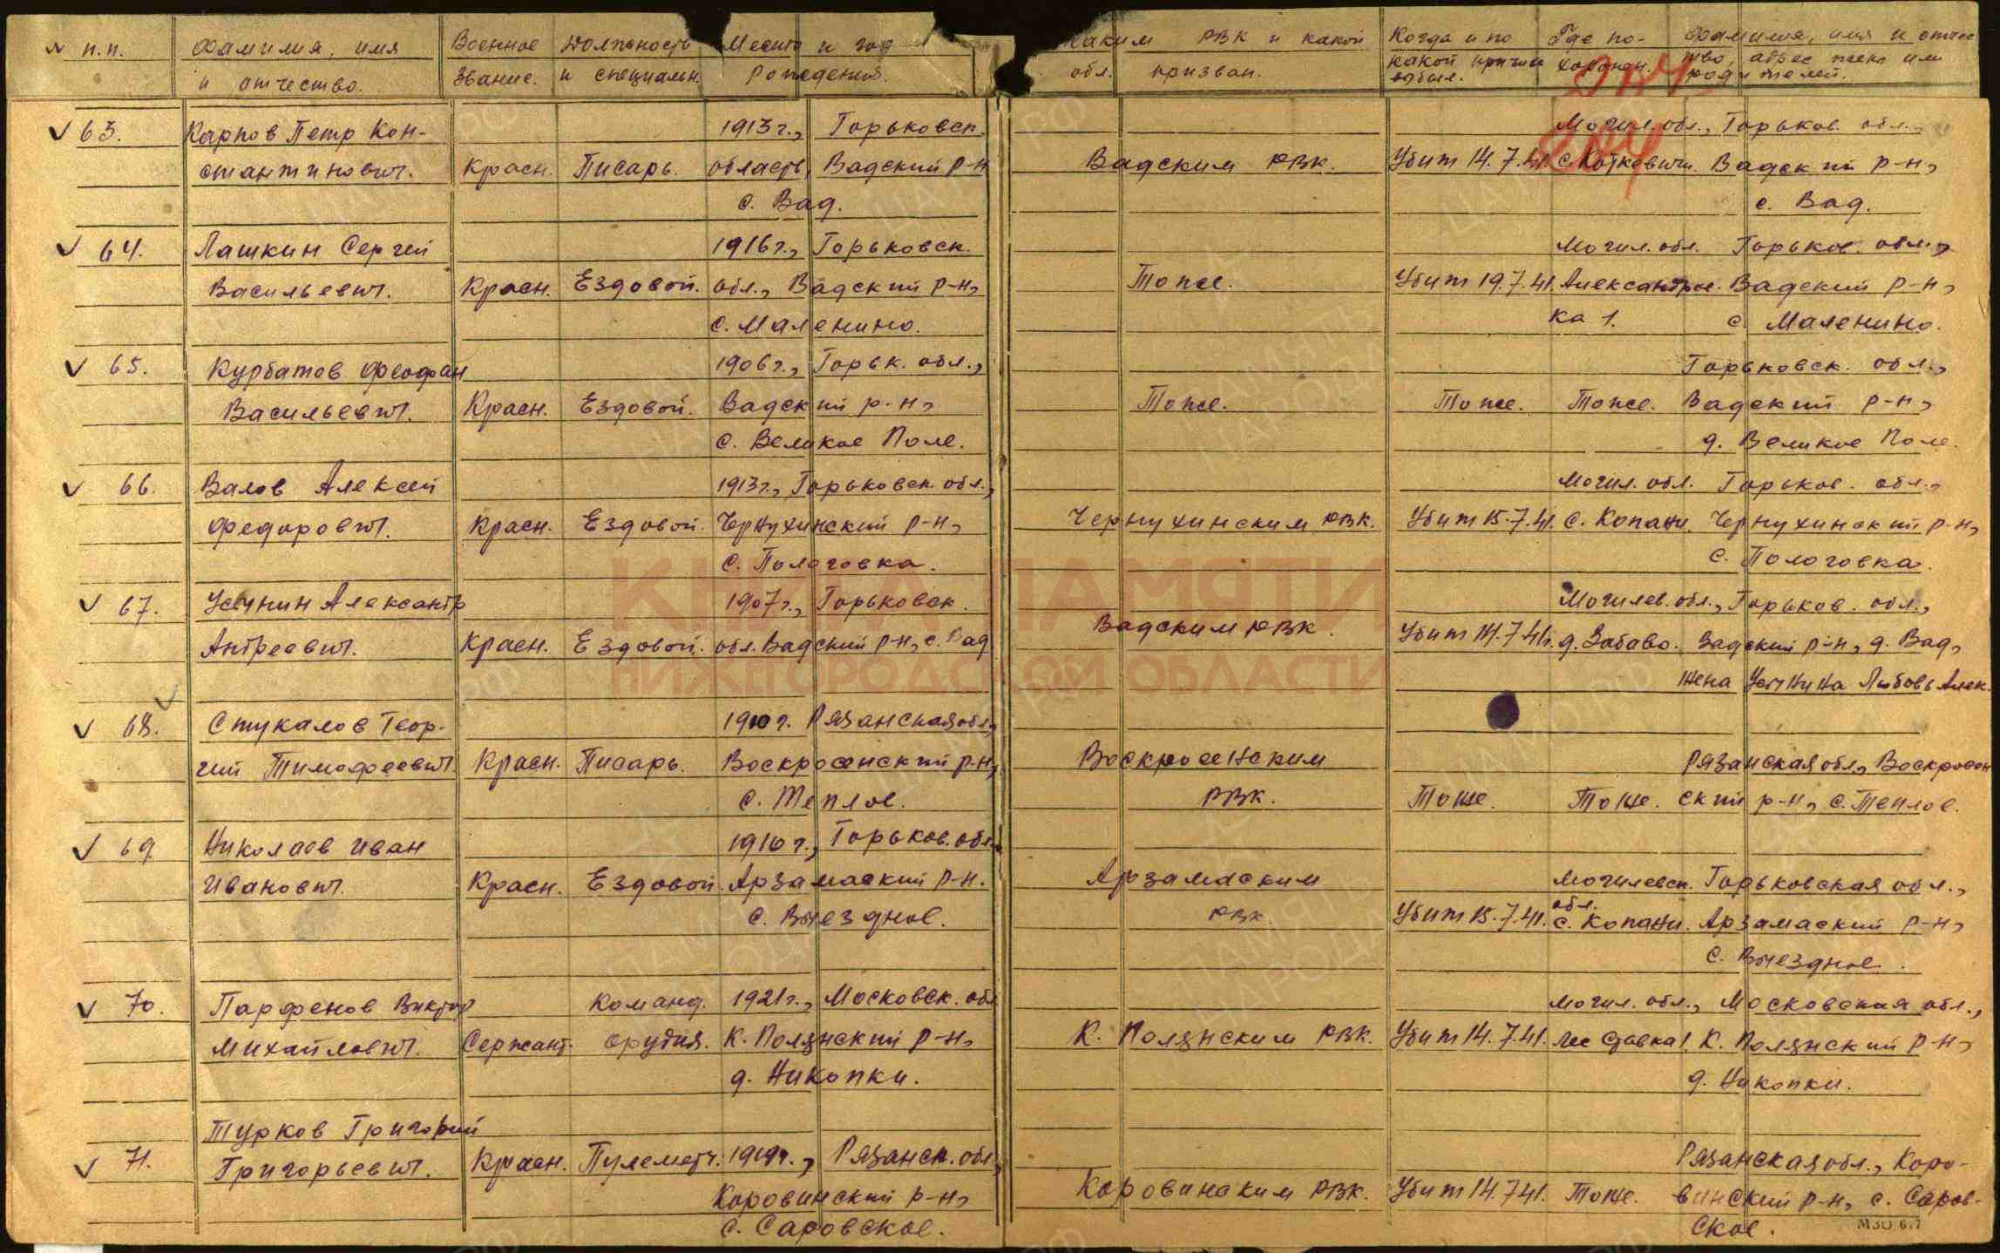 № п.п. Фамилия, имя Военное Должность Место и год Каким РВК и какой Когда и по Где по- Фамилия, имя и отчес
и отчество. звание. и специальн. рождения. обл. призван. какой причине выбыл. хоронен. тво, адрес жены или родителей.
63. Карпов Петр Кон- 1913г., Горьковск. Могил. обл., Горьков. обл.,
стантинович. Красн. Писарь. область, Вадский р-н Вадским РВК. Убит 14.7.41 с. Коткевичи. Вадский р-н,
с. Вад. с. Вад.
64. Лашкин Сергей 1916г., Горьковск. Могил. обл. Горьков. обл.,
Васильевич. Красн. Ездовой. обл., Вадский р-н, Тоже. Убит 19.7.41. Александров- Вадский р-н,
с. Маленино. ка 1. с. Маленино.
65. Курбатов Феофан 1906г., Горьк. обл., Горьковск. обл.,
Васильевич. Красн. Ездовой. Вадский р-н, Тоже. Тоже. Тоже. Вадский р-н,
с. Великое Поле. д. Великое Поле.
66. Валов Алексей 1913г., Горьковск. обл., Могил. обл. Горьков. обл.,
Федорович. Красн. Ездовой. Чернухинский р-н, Чернухинским РВК. Убит 15.7.41. с. Копани. Чернухинский р-н,
с. Пологовка. с. Пологовка.
67. Усинин Александр 1907г., Горьковск. Могилев. обл., Горьков. обл.,
Андреевич. Красн. Ездовой. обл. Вадский р-н, с. Вад Вадским РВК. Убит 14.7.41г. д. Забаво. Вадский р-н, д. Вад,
жена Любовь Алек.
68. Стукалов Геор- 1910г. Рязанская обл.,
гий Тимофеевич. Красн. Писарь. Воскресенский р-н, Воскресенским Рязанская обл., Воскресен
с. Теплое. РВК. Тоже. Тоже. ский р-н, с. Теплое.
69 Николаев Иван 1910г., Горьков. обл.
Иванович. Красн. Ездовой. Арзамаский р-н. Арзамаским Могилевск. Горьковская обл.,
с. Выездное. РВК. Убит 15.7.41. обл. с. Копани. Арзамаский р-н,
с. Выездное.
70. Парфенов Виктор Команд. 1921г., Московск. обл Могил. обл., Московская обл.,
Михайлович. Сержант. орудия. К. Полянский р-н, К. Полянским РВК. Убит 14.7.41. К. Полянский р-н,
д. Никопки. д. Никопки.
Турков Григорий
71. Григорьевич. Красн. Пулеметч. 1919г., Рязанск. обл, Рязанская обл., Коро-
Коровинский р-н, Коровинским РВК. Убит 14.7.41. Тоже. винский р-н, с. Саров-
с. Саровское. ское.
КНИГА ПАМЯТИ
НИЖЕГОРОДСКОЙ ОБЛАСТИ